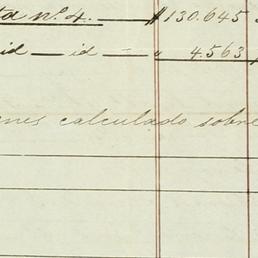 ta nº. 4. — $130.645
id — id — " 4.563
enes calculado sobre